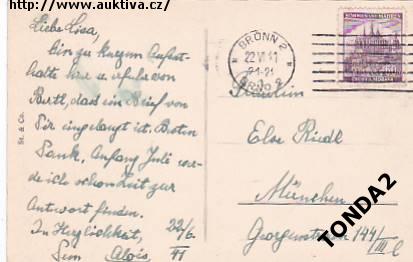 http://www.auktiva.cz/
Liebe Lisa,
bin zu kurzem Aufent-
halte hier u. erfuhr von
Bertl, dass ein Brief von
Dir eingelangt ist. Besten
Dank, Anfang Juli wer-
de ich schon Zeit zur
Antwort finden.
In Herzlichkeit,
Dein Alois
22/6.
41
St. & Co.
BRÜNN 2
22 VI 41
21-21
BRNO 2
BÖHMEN UND MÄHREN
Fräulein
Else Riedl
München
Georgenstrasse 144/
III l
TONDA2